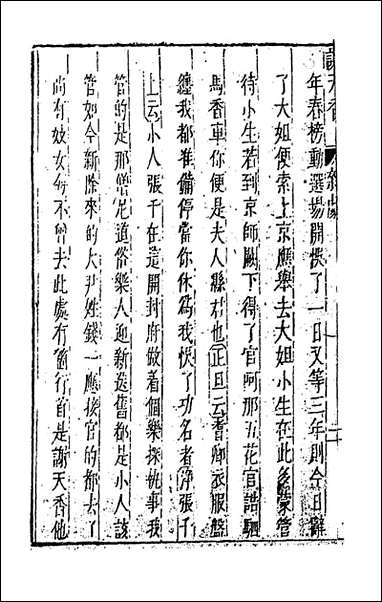 謝天香 雜劇
年春榜動選場開悞了一日又等三年則今日辭
了大姐便索上京應舉去大姐小生在此多蒙管
待小生若到京師闕下得了官呵那五花官誥駟
馬香車你便是夫人縣君也正旦云耆卿衣服盤
纏我都准備停當你休為我悞了功名者淨張千
上云小人張千在這開封府做着個樂探執事我
管的是那僧尼道俗樂人迎新送舊都是小人該
管如今新除來的大尹姓錢一應接官的都去了
尚有妓女每不曾去此處有箇行首是謝天香他